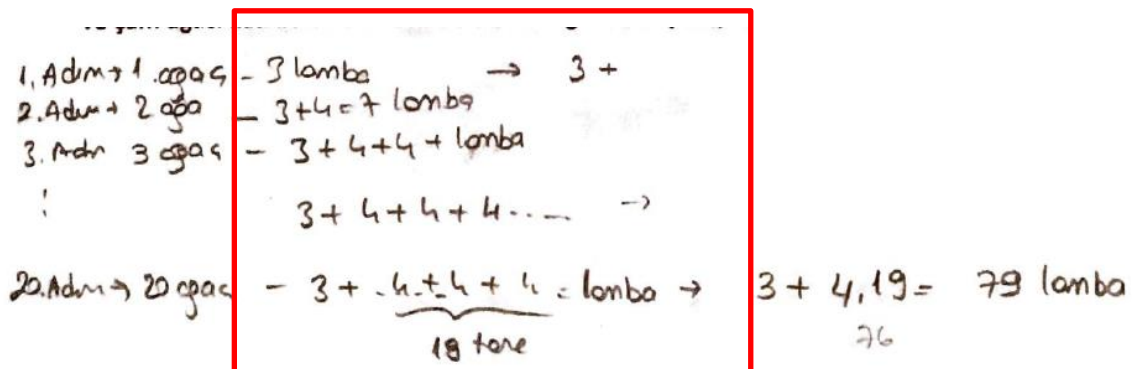 1. Adım → 1. ağaç - 3 lamba → 3 +
2. Adım → 2 ağa - 3+4=7 lamba
3. Adm 3 ağaç - 3+4+4+ lamba
⋮ 3+4+4+4..... →
20. Adm → 20 ağaç - 3 + 4 + 4 + 4 = lamba → 3 + 4.19 = 79 lamba
19 tane 76